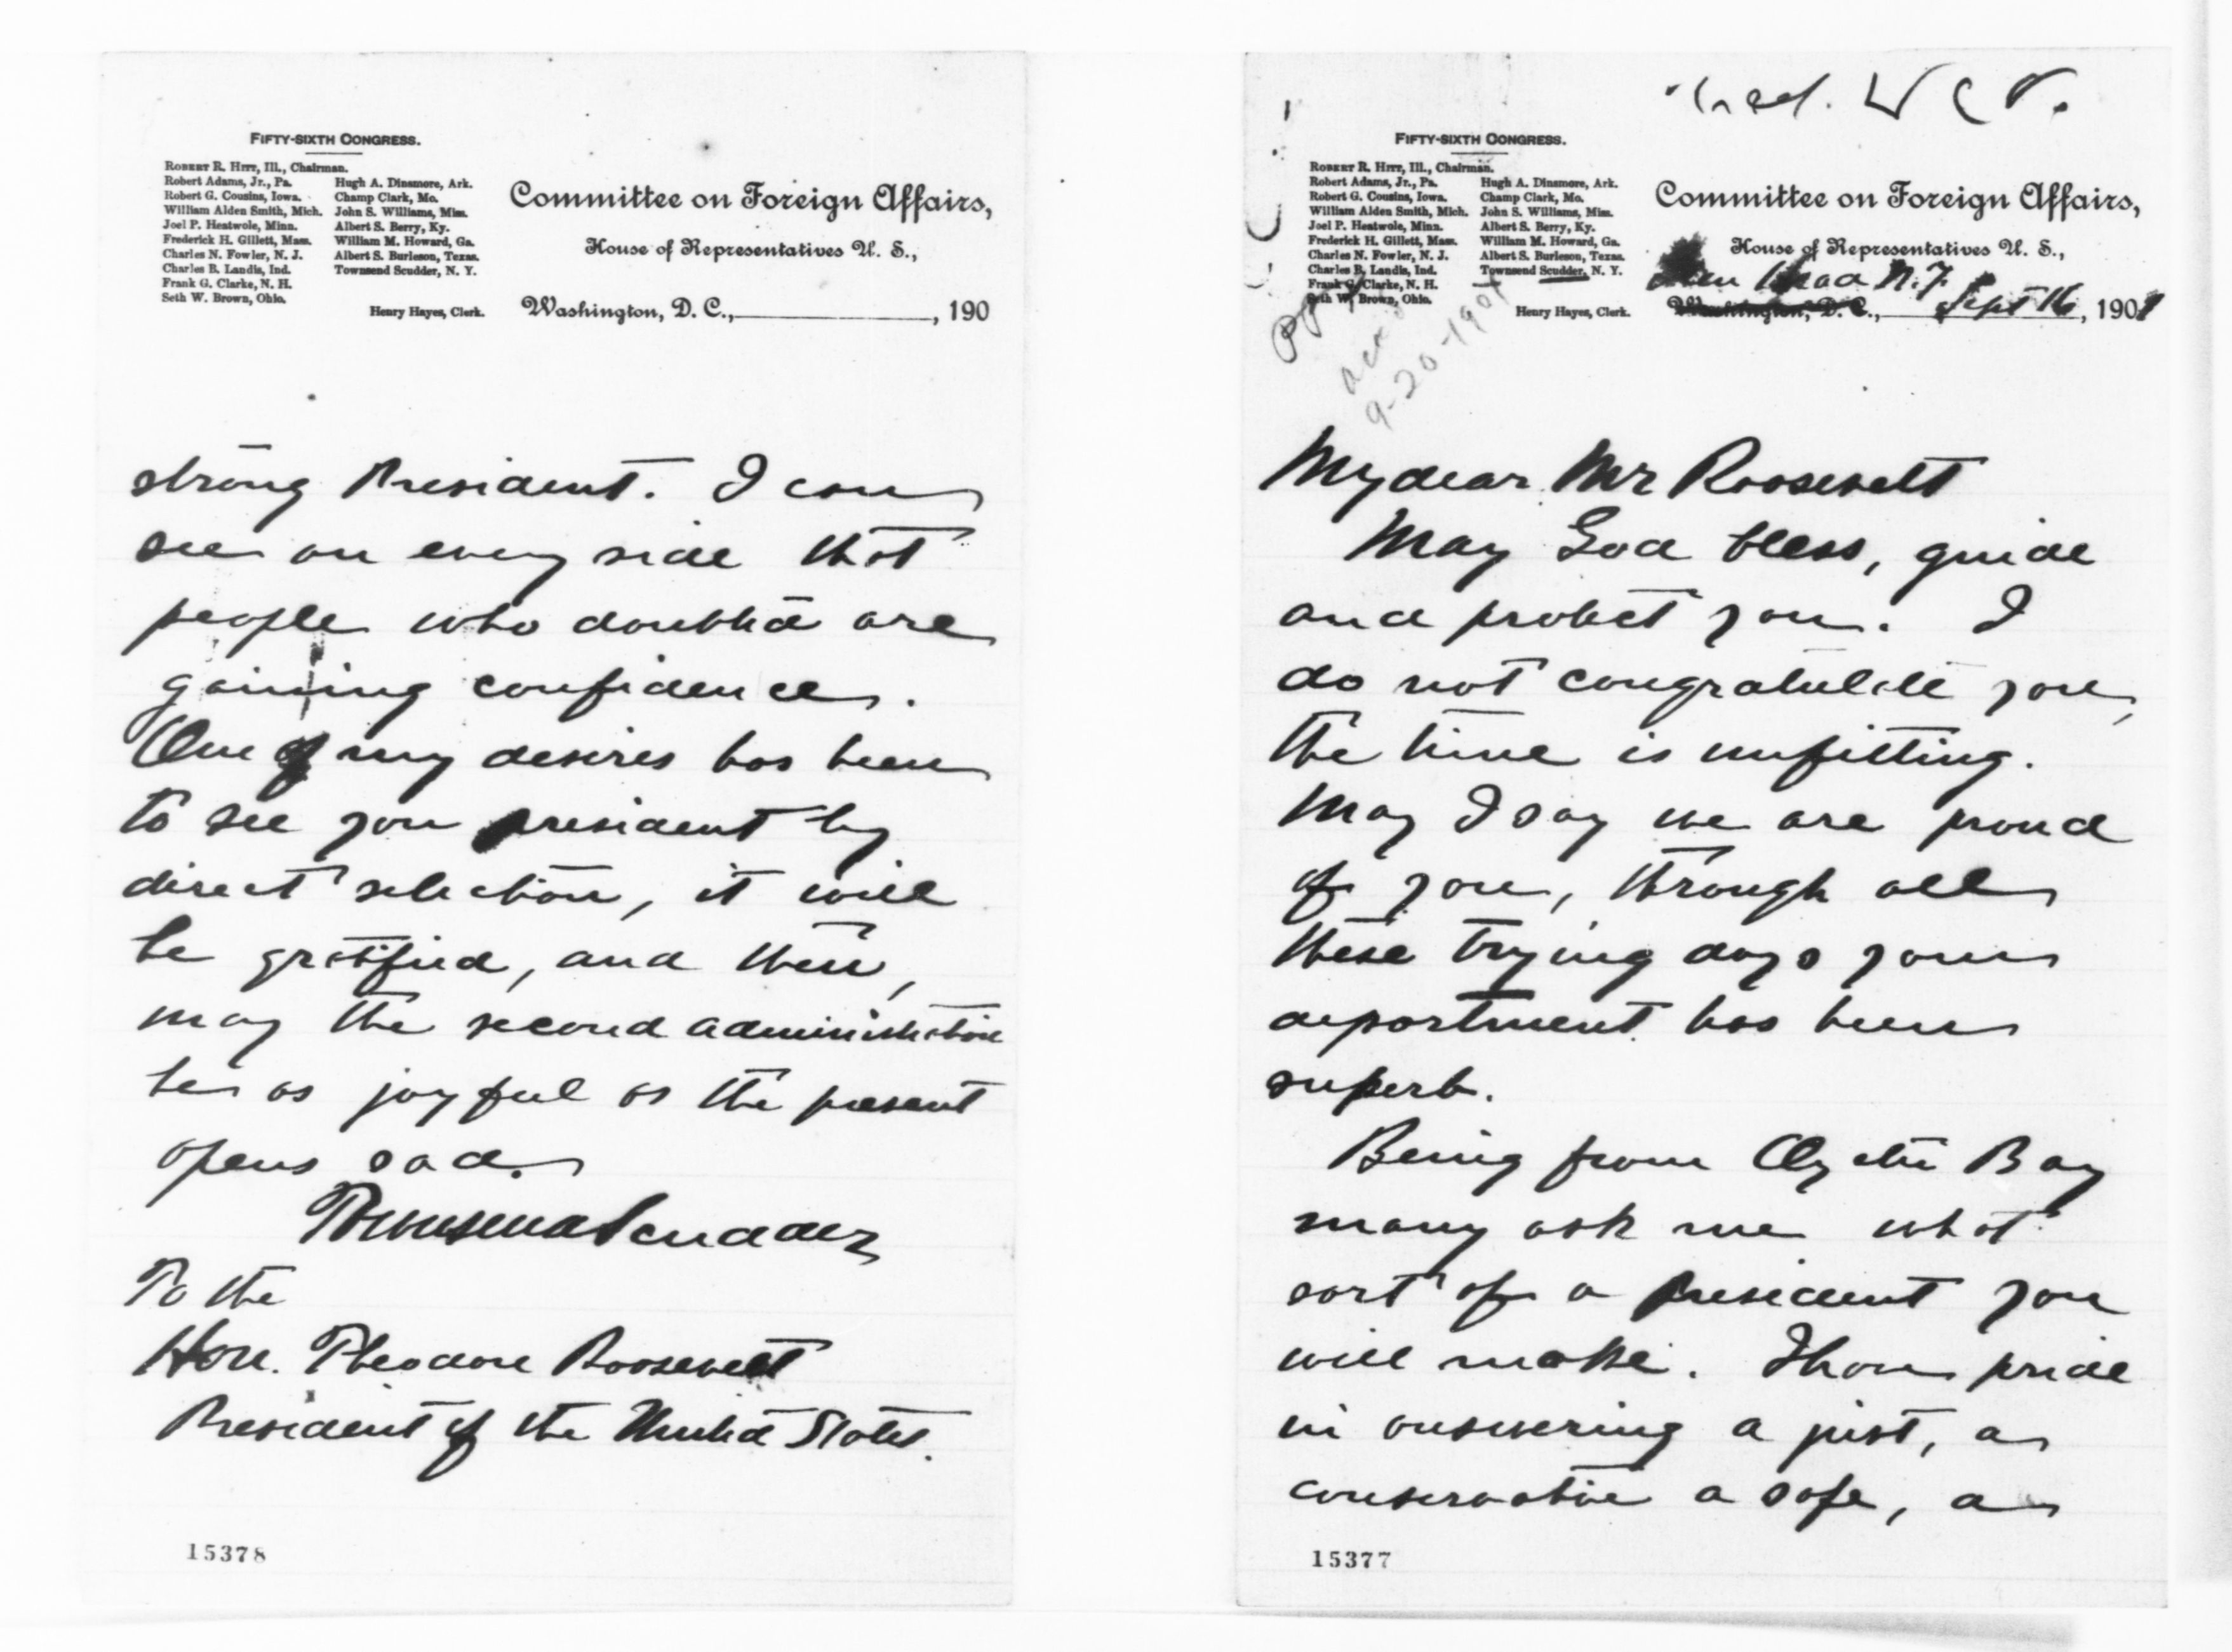 FIFTY-SIXTH CONGRESS.
ROBERT R. HITT, Ill., Chairman.
Robert Adams, Jr., Pa.
Robert G. Cousins, Iowa.
William Alden Smith, Mich.
Joel P. Heatwole, Minn.
Frederick H. Gillett, Mass.
Charles N. Fowler, N. J.
Charles B. Landis, Ind.
Frank G. Clarke, N. H.
Seth W. Brown, Ohio.
Hugh A. Dinsmore, Ark.
Champ Clark, Mo.
John S. Williams, Miss.
Albert S. Berry, Ky.
William M. Howard, Ga.
Albert S. Burleson, Texas.
Townsend Scudder, N. Y.
Henry Hayes, Clerk.
Committee on Foreign Affairs,
House of Representatives U. S.,
Washington, D. C., , 190
strong President. I can
see on every side that
people who doubted are
gaining confidence.
One of my desires has been
to see you president by
direct selection, it will
be gratified, and then,
may the second administration
be as joyful as the present
opens sad.
Townsend Scudder
To the
Hon. Theodore Roosevelt
President of the United States.
15378
FIFTY-SIXTH CONGRESS.
ROBERT R. HITT, Ill., Chairman.
Robert Adams, Jr., Pa.
Robert G. Cousins, Iowa.
William Alden Smith, Mich.
Joel P. Heatwole, Minn.
Frederick H. Gillett, Mass.
Charles N. Fowler, N. J.
Charles B. Landis, Ind.
Frank G. Clarke, N. H.
Seth W. Brown, Ohio.
Hugh A. Dinsmore, Ark.
Champ Clark, Mo.
John S. Williams, Miss.
Albert S. Berry, Ky.
William M. Howard, Ga.
Albert S. Burleson, Texas.
Townsend Scudder, N. Y.
Henry Hayes, Clerk.
Committee on Foreign Affairs,
House of Representatives U. S.,
Glen Head N.Y.
Washington, D. C., Sept 16, 1901
9-20-1901
My dear Mr Roosevelt
May God bless, guide
and protect you. I
do not congratulate you,
the time is unfitting.
May I say we are proud
of you, through all
these trying days your
deportment has been
superb.
Being from Oyster Bay
many ask me what
sort of a President you
will make. I have pride
in answering a just, a
conservative a safe, a
15377